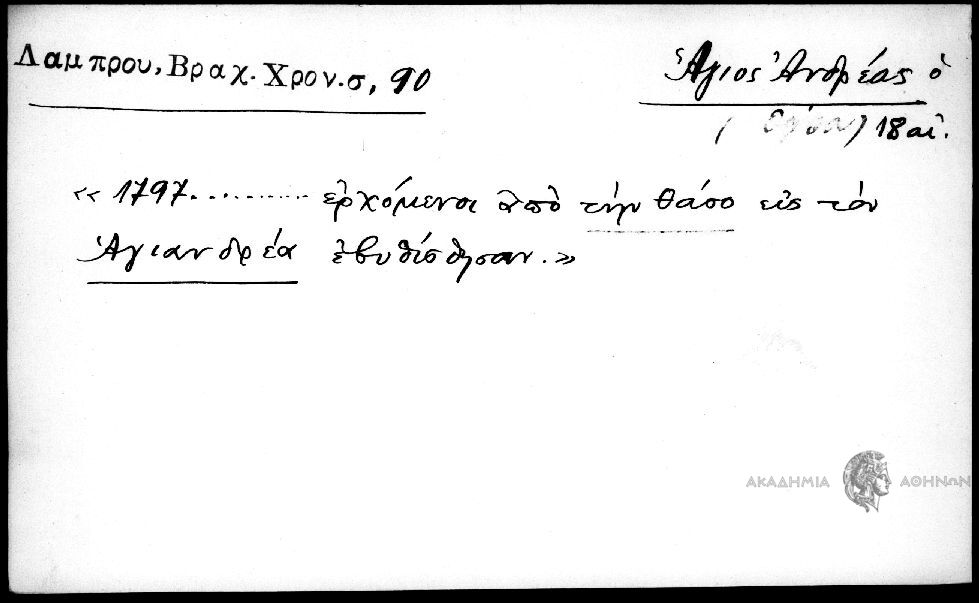 Λαμπρου, Βραχ. Χρον. σ, 90
Ἅγιος Ἀνδρέας ὁ
18 αἰ.
« 1797.......... ἐρχόμενοι ἀπὸ τὴν Θάσο εἰς τὸν
Ἁγιανδρέα ἐβυθίσθησαν. »
ΑΚΑΔΗΜΙΑ ΑΘΗΝΩΝ